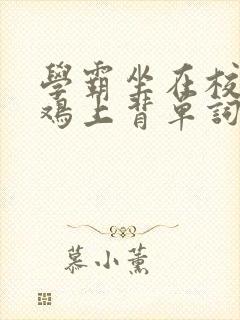 學霸坐在校
鸡上背单詞
慕小薰